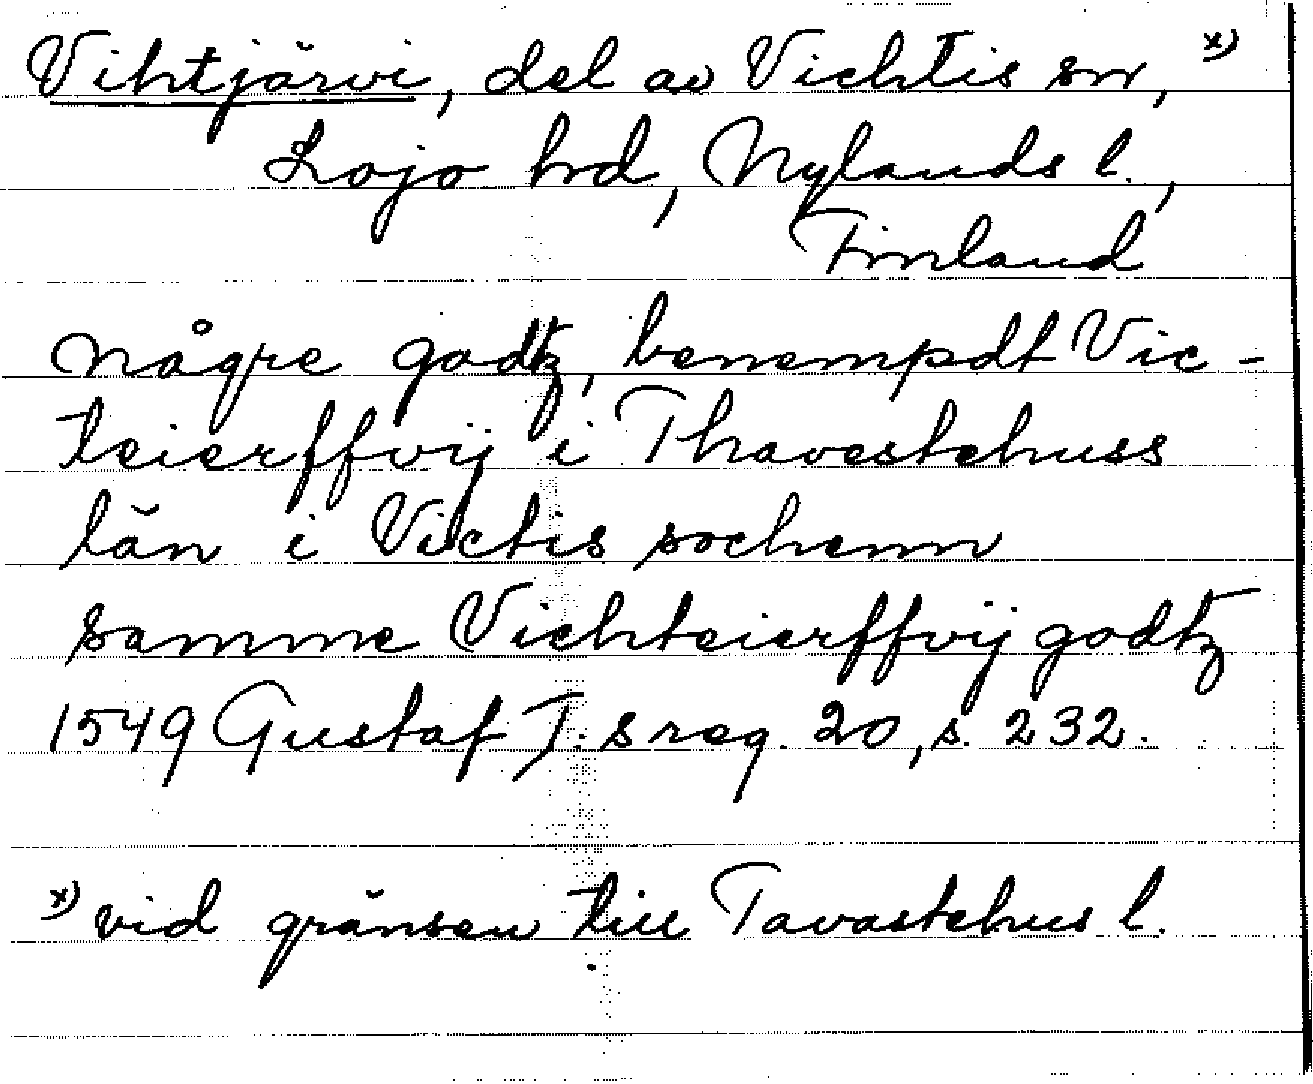 Vihtjärvi, del av Vichtis sn, x)
Lojo hd, Nylands l.,
Finland
någre godtz, benempdt Vic-
teierffvij i Thavestehuss
län i Victis sochenn
samme Vichteierffvij godtz
1549 Gustaf I:s reg. 20, s. 232.
x) vid gränsen till Tavastehus l.